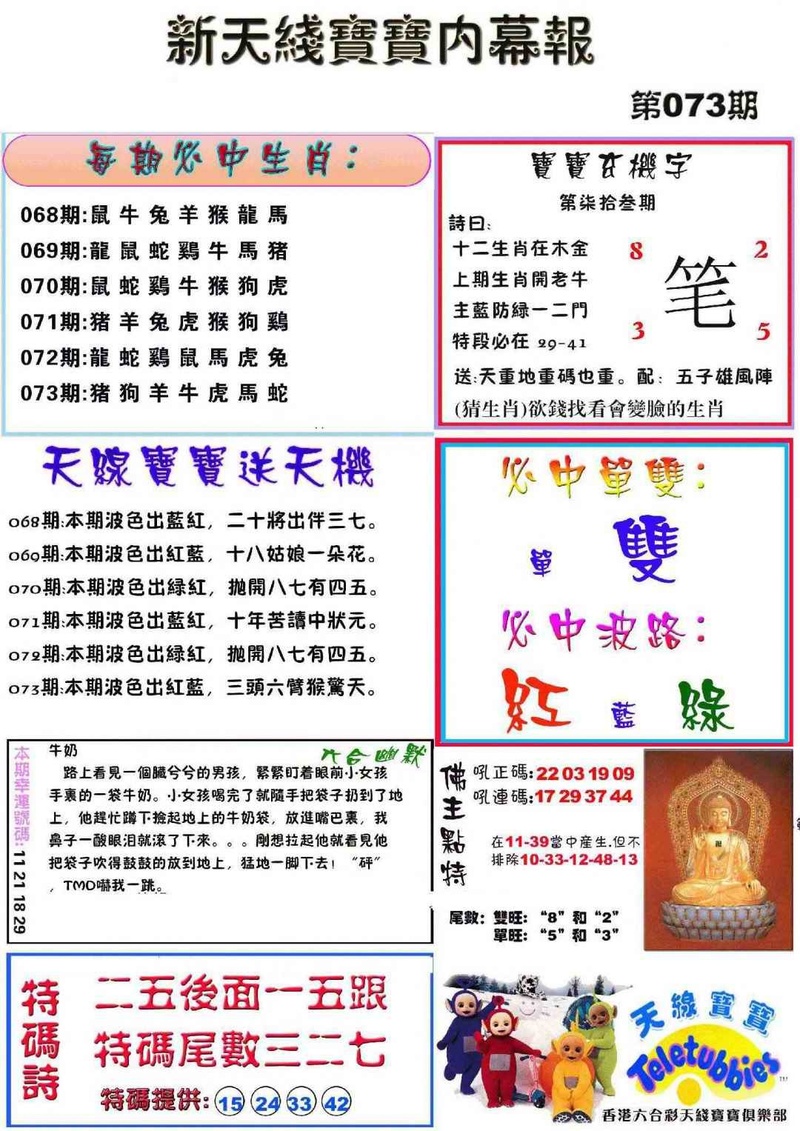 新天綫寶寶内幕報
第073期
每期必中生肖：
068期:鼠牛兔羊猴龍馬
069期:龍鼠蛇鷄牛馬猪
070期:鼠蛇鷄牛猴狗虎
071期:猪羊兔虎猴狗鷄
072期:龍蛇鷄鼠馬虎兔
073期:猪狗羊牛虎馬蛇
寶寶玄機字
第柒拾叁期
詩曰:
十二生肖在木金
上期生肖開老牛
主藍防緑一二門
特段必在 29-41
8
2
笔
3
5
送:天重地重碼也重。配：五子雄風陣
(猜生肖)欲錢找看會變臉的生肖
天線寶寶送天機
068期:本期波色出藍紅，二十將出伴三七。
069期:本期波色出紅藍，十八姑娘一朵花。
070期:本期波色出緑紅，抛開八七有四五。
071期:本期波色出藍紅，十年苦讀中狀元。
072期:本期波色出緑紅，抛開八七有四五。
073期:本期波色出紅藍，三頭六臂猴驚天。
必中單雙：
單 雙
必中波路：
紅 藍 綠
本期幸運號碼:11 21 18 29
六合幽默
牛奶
路上看見一個臟兮兮的男孩，緊緊盯着眼前小女孩
手裏的一袋牛奶。小女孩喝完了就隨手把袋子扔到了地
上，他趕忙蹲下撿起地上的牛奶袋，放進嘴巴裏，我
鼻子一酸眼泪就滚了下來。。。剛想拉起他就看見他
把袋子吹得鼓鼓的放到地上，猛地一脚下去！“砰”
，TMD嚇我一跳。
佛主點特
吼正碼:22 03 19 09
吼連碼:17 29 37 44
在11-39當中産生.但不
排除10-33-12-48-13
尾數：雙旺：“8”和“2”
單旺：“5”和“3”
特碼詩
二五後面一五跟
特碼尾數三二七
特碼提供: 15 24 33 42
天線寶寶
Teletubbies
TM
香港六合彩天綫寶寶俱樂部